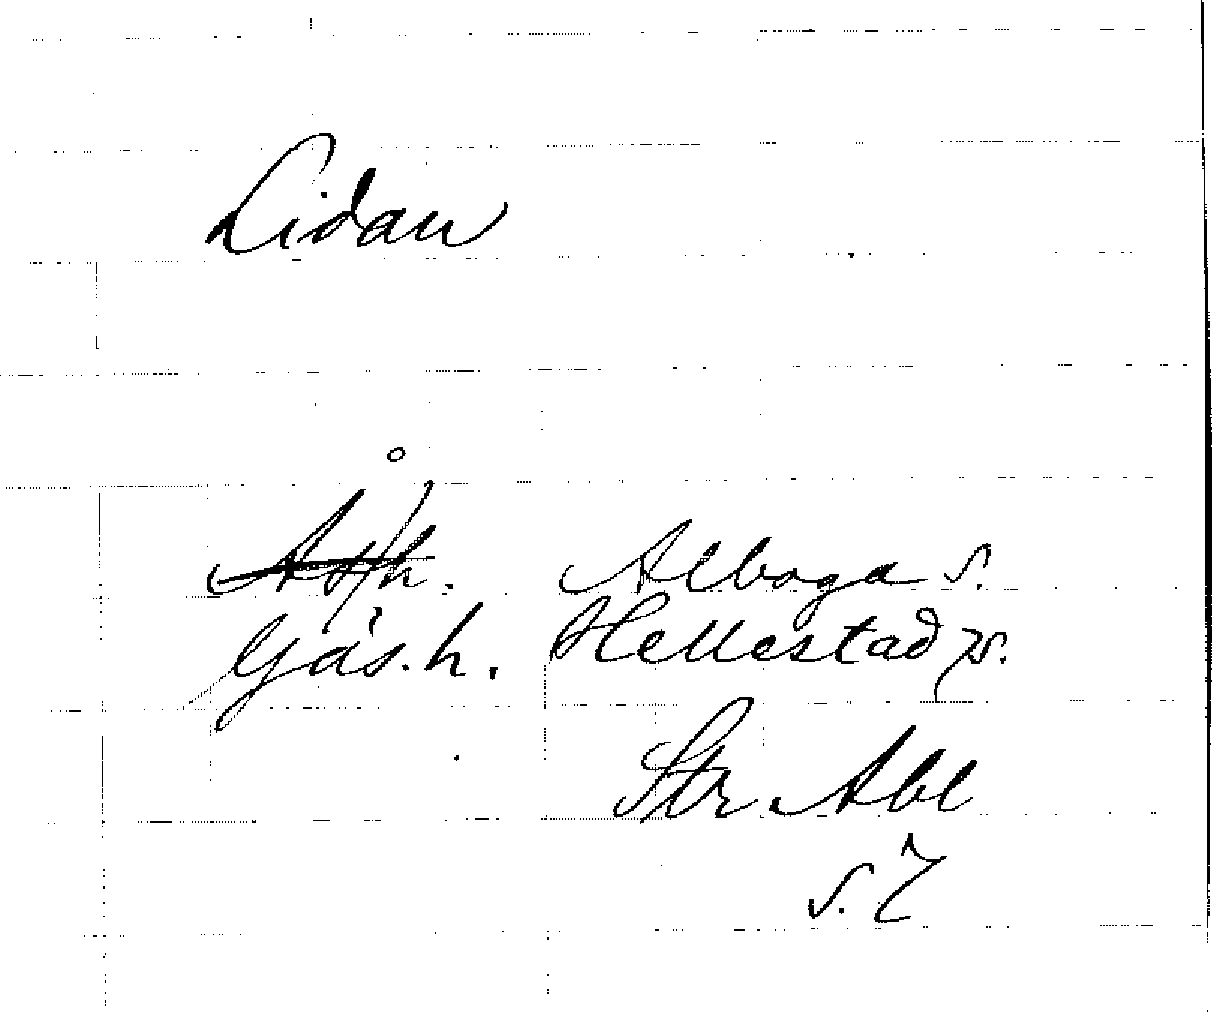 Lidan
Ås h. Alboga s.
Gäs. h. Hellestad s.
Str. Abl
s. 7